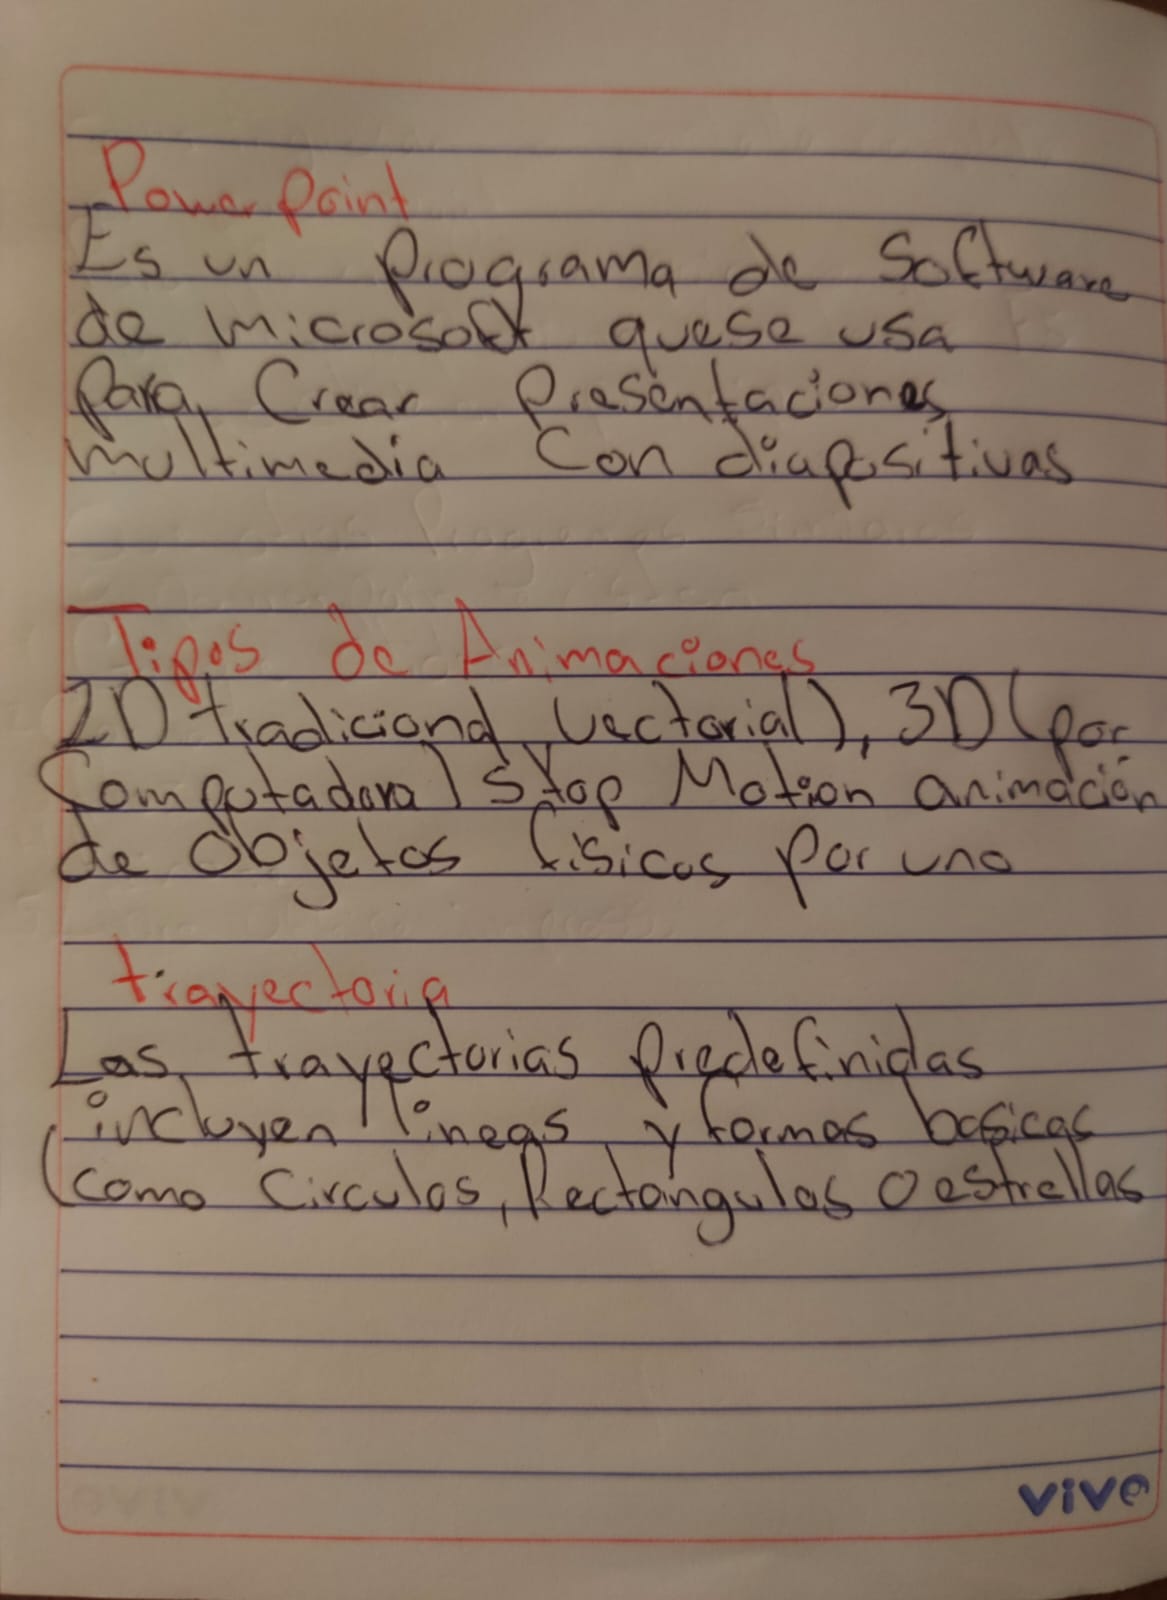 Power Point
Es un programa de Software
de microsoft quese usa
para Crear Presentaciones
multimedia Con diapositivas
Tipos de Animaciones
2D tradicional vectorial), 3D (por
Computadora) Stop Motion animación
de objetos físicos por uno
trayectoria
Las trayectorias Predefinidas
incluyen lineas y formas basicas
(como Circulos, Rectángulos o estrellas
vive